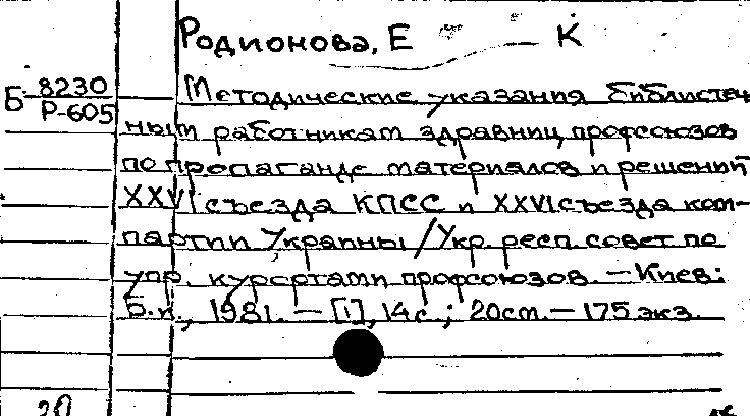 Родионова, Е К
Б 8230
Р-605
Методические указания библиотеч
ным работникам здравниц профсоюзов
по пропаганде материалов и решений
XXVI съезда КПСС и XXVI съезда ком-
партии Украины / Укр. респ. совет по
упр. курортами профсоюзов. — Киев:
Б.и., 1981. — [1], 14 с.; 20 см. — 175 экз.